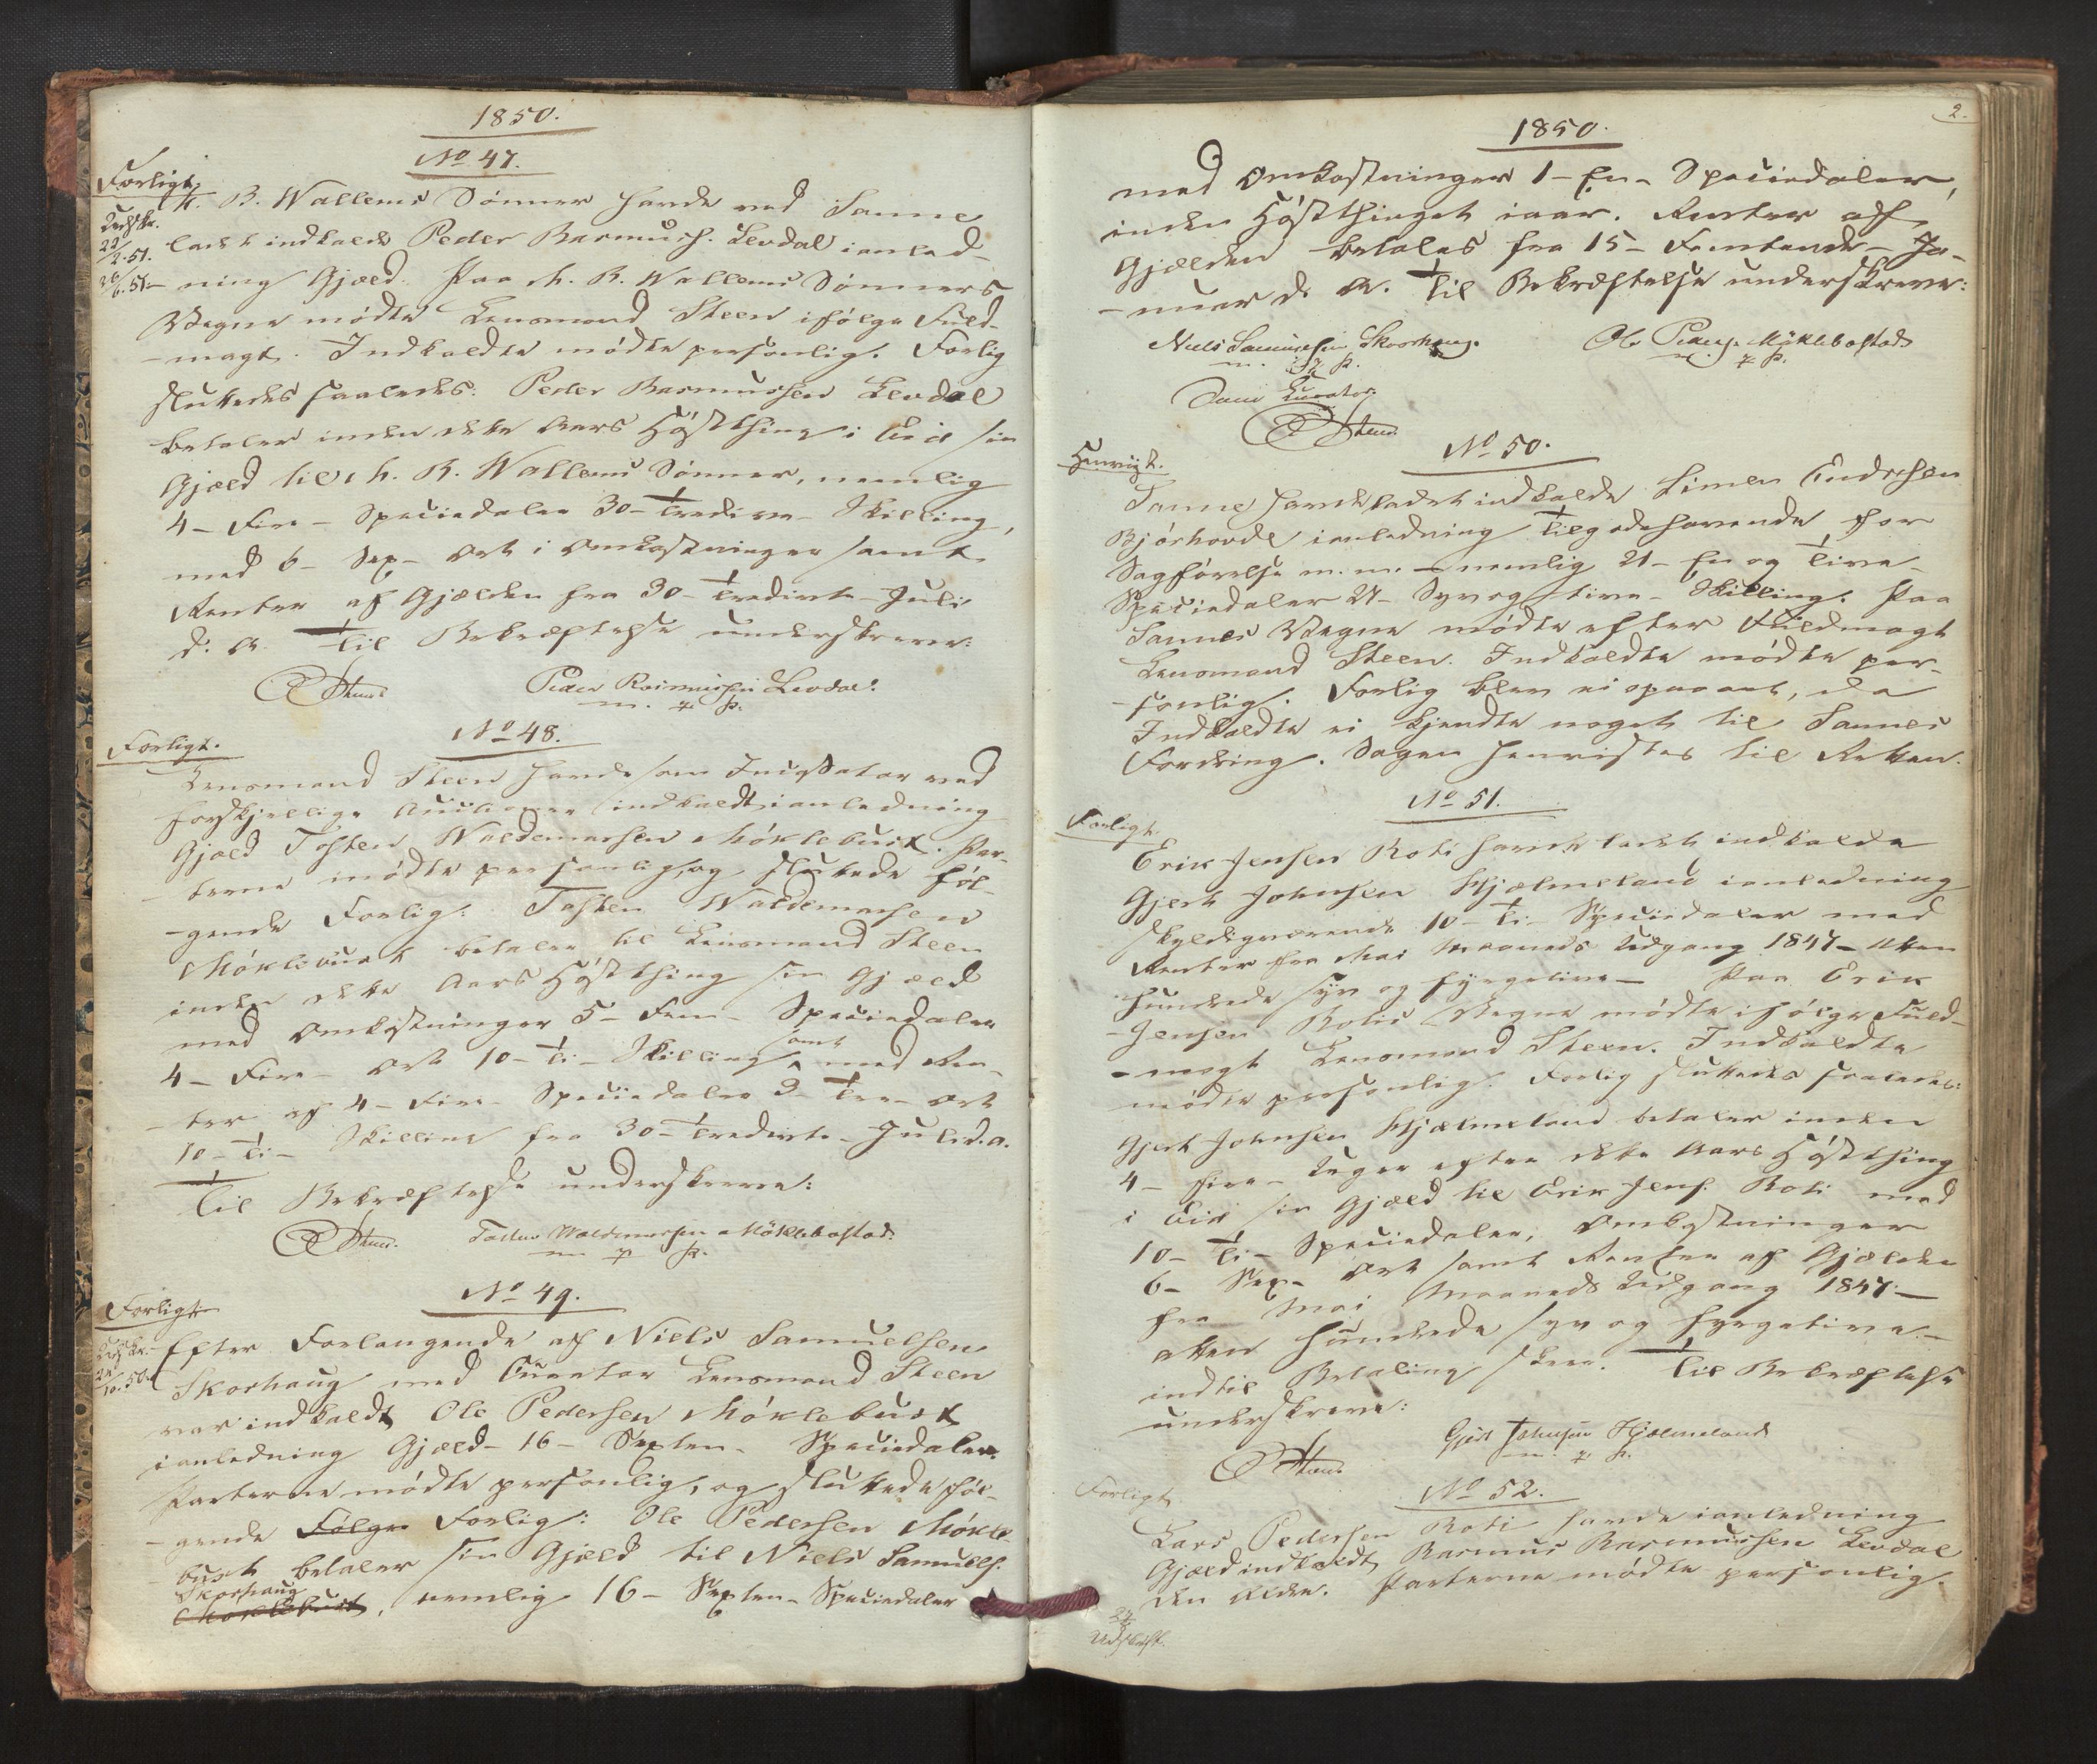 1850.
No 47.
Forligt.
Udskr.
22/2. 51.
26/6. 51.
M. B. Wallems Sønner havde ved Sanne
ladet indkalde Peder Rasmuss. Levdal ianled-
ning Gjæld. Paa M. B. Wallems Sønners
Vegne mødte Lensmand Steen ifølge Fuld-
-magt. Indkaldte mødte personlig. Forlig
sluttedes saaledes: Peder Rasmussen Levdal
betaler inden dette Aars Høstthing i Eid sin
Gjæld til M. B. Wallems Sønner, nemlig
4 - Fire - Speciedaler 30 - Tredive - Skilling,
med 6 - Sex - Ort i Omkostninger samt
Renter af Gjælden fra 30 - Tredivte - Juli
d. A. Til Bekræftelse underskreve:
Steen
Peder Rasmussen Levdal.
m. p. P.
No 48.
Forligt.
Lensmand Steen havde som Incassator ved
forskjellige Auctioner indkaldt ianledning
Gjæld Tosten Waldemarsen Møklebust. Par-
-terne mødte personlig, og sluttede føl-
-gende Forlig: Tosten Waldemarsen
Møklebust betaler til Lensmand Steen
inden dette Aars Høstthing sin Gjæld
med Omkostninger 5 - Fem - Speciedaler
4 - Fire - Ort 10 - Ti - Skilling samt med Ren-
-ter af 4 - Fire - Speciedaler 3 - Tre - Ort
10 - Ti - Skilling fra 30 - Tredivte - Juli d. A.
Til Bekræftelse underskreve:
Steen.
Tosten Waldemarsen Møklebostad.
m p P.
No 49.
Forligt
Udskr.
10. 50.
Efter Forlangende af Niels Samuelsen
Skorhaug med Curator Lensmand Steen
var indkaldt Ole Pedersen Møklebust
ianledning Gjæld - 16 - Sexten - Speciedaler.
Parterne mødte personlig, og sluttede føl-
-gende Følge Forlig: Ole Pedersen Møkle-
bust betaler sin Gjæld til Niels Samuels.
Skorhaug
Møklebust, nemlig 16 - Sexten - Speciedaler
2.
1850.
med Omkostninger 1 - En - Speciedaler,
inden Høstthinget iaar. Renter af
Gjælden betales fra 15 - Femtende - Ja-
-nuar d. A. Til Bekræftelse underskreve:
Niels Samuelsen Skorhaug.
m. i. P.
Ole Peders. Møklebostad
m. p P.
Som Curator:
Steen
No 50.
Henviist.
Sanne havde ladet indkalde Simen Endresen
Bjørhovde ianledning Tilgodehavende for
Sagførelse m. m. - nemlig 21 - En og Tive -
Speciedaler 27 - Syv og tive - Skilling. Paa
Sannes Vegne mødte efter Fuldmagt
Lensmand Steen. Indkaldte mødte per-
-sonlig. Forlig blev ei opnaaet, da
Indkaldte ei kjendte noget til Sannes
Fordring. Sagen henvistes til Retten.
No 51.
Forligt.
Erik Jensen Roti havde ladet indkalde
Gjert Johnsen Hjælmeland ianledning
skyldigværende 10 - Ti - Speciedaler med
Renter fra Mai Maaneds Udgang 1847 - Atten
hundrede syv og fyrgetive - Paa Erik
-Jensen Rotis Vegne mødte ifølge Fuld-
-magt Lensmand Steen. Indkaldte
mødte personlig. Forlig sluttedes saaledes:
Gjert Johnsen Hjælmeland betaler inden
4 - fire - Uger efter dette Aars Høstthing
i Eid sin Gjæld til Erik Jens. Roti med
10 - Ti - Speciedaler, Omkostninger
6 - Sex - Ort samt Renter af Gjælden
fra Mai Maaneds Udgang 1847 -
atten hundrede syv og fyrgetive -
indtil Betaling skeer. Til Bekræftelse
underskreve:
Steen
Gjert Johnsen Hjælmeland
m. p P.
No 52.
Forligt
Lars Pedersen Roti havde ianledning
Gjæld indkaldt Rasmus Rasmussen Levdal
den Ældre. Parterne mødte personlig.
Udskrift.